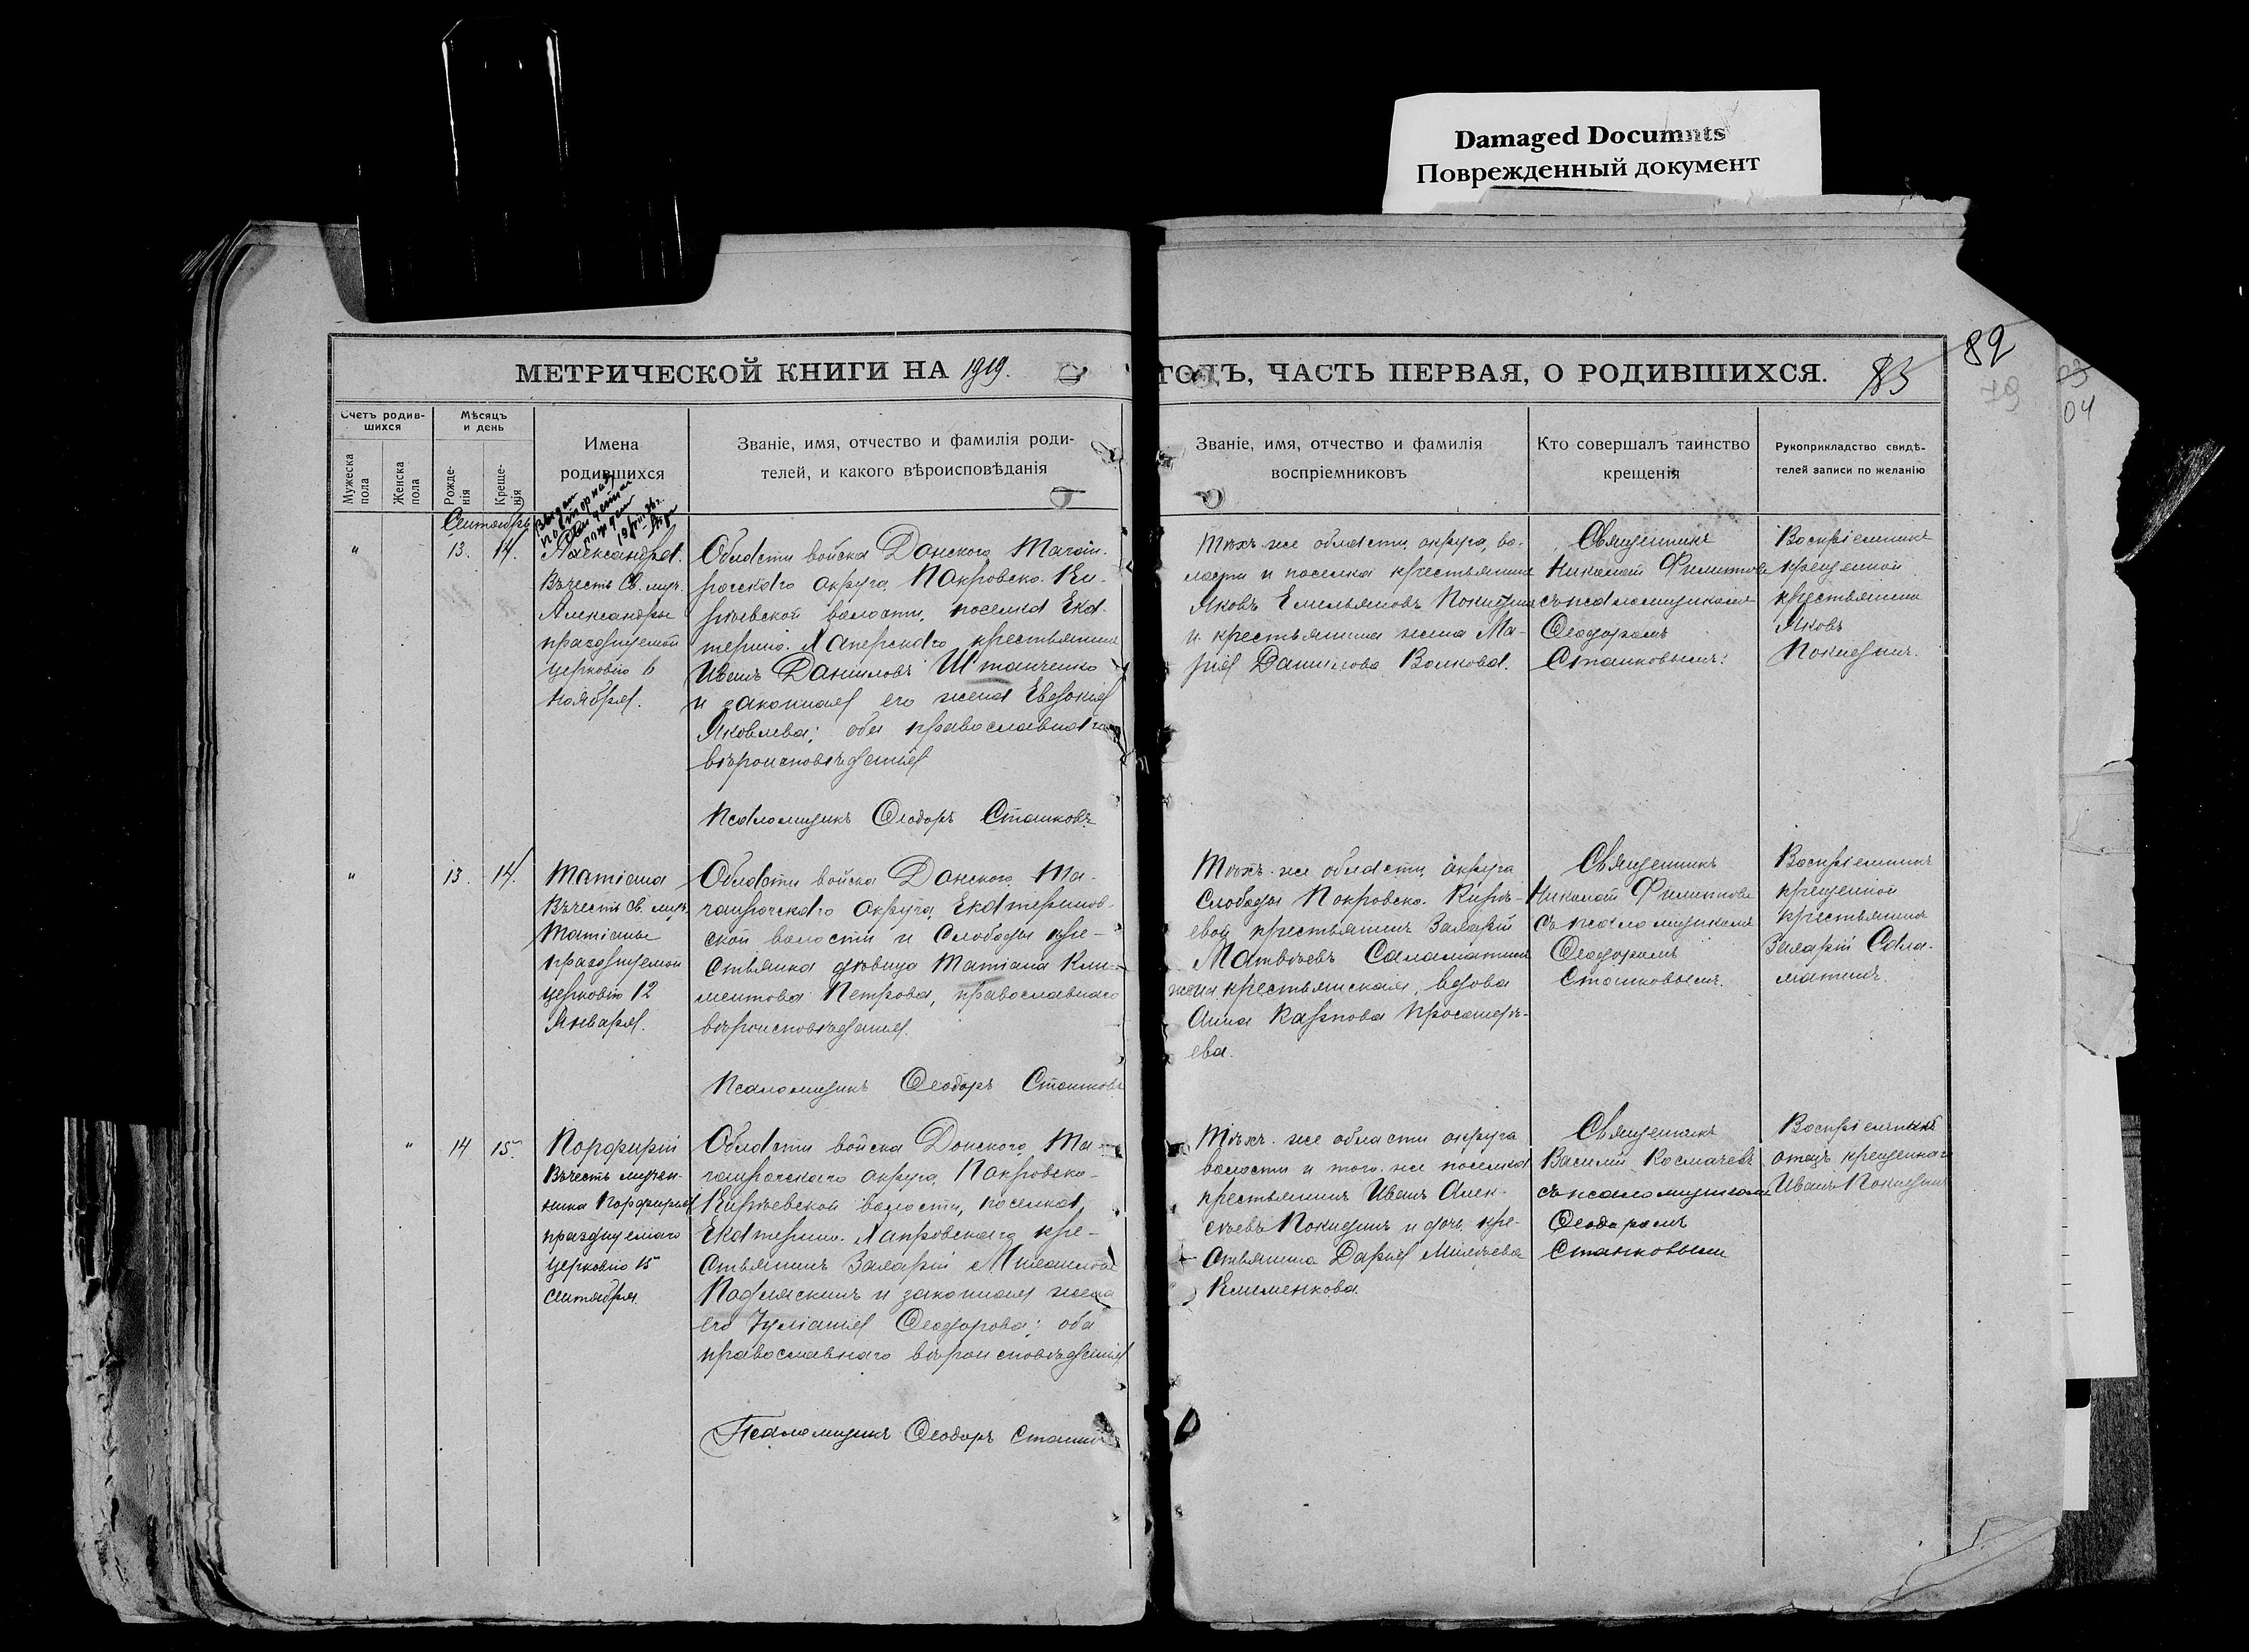 Damaged Documnts
Поврежденный документ
МЕТРИЧЕСКОЙ КНИГИ НА 1919.
ГОДЪ, ЧАСТЬ ПЕРВАЯ, О РОДИВШИХСЯ.
85
82
79
04
Счетъ родив-
шихся
Мужеска
пола
Женска
пола
Мѣсяцъ
и день
Рожде-
нія
Креще-
нія
Имена
родившихся
Званіе, имя, отчество и фамилія роди-
телей, и какого вѣроисповѣданія
Званіе, имя, отчество и фамилія
воспріемниковъ
Кто совершалъ таинство
крещенія
Рукоприкладство свидѣ-
телей записи по желанію
Сентябрь
"
13.
14.
Александра.
Въ честь Св. муч.
Александры
празднуемой
церковію 6
Ноября.
Области войска Донского Таган-
рогскаго округа, Покровско-Ки-
рѣевской волости, поселка Ека-
терино-Хаперскаго крестьянинъ
Иванъ Даниловъ Штанченко
и законная его жена Евдокія
Яковлева; оба православнаго
вѣроисповѣданія
Псаломщикъ Ѳеодоръ Сташковъ
Тѣхъ-же области, округа, во-
лости и поселка крестьянинъ
Яковъ Емельяновъ
и крестьянина жена Ма-
рія Данилова Волкова.
Священникъ
Николай Филиппов
съ псаломщикомъ
Ѳеодоромъ
Сташковымъ.
Воспріемникъ
крещенной
крестьянинъ
Яковъ
"
13.
14.
Татіана
Въ честь св. муч.
Татіаны
празднуемой
церковію 12
Января.
Области войска Донского, Та-
ганрогскаго округа, Екатеринов-
ской волости и Слободы кре-
стьянка дѣвица Татіана Кли-
ментова Петрова, православнаго
вѣроисповѣданія.
Псаломщикъ Ѳеодоръ Сташковъ
Тѣхъ-же области, округа
Слободы Покровско-Кирѣ-
евой крестьянинъ Захарій
Матвѣевъ Саламатинъ
крестьянская вдова
Анна Карпова
ева.
Священникъ
Николай Филиппов
съ псаломщикомъ
Ѳеодоромъ
Сташковымъ.
Воспріемникъ
крещенной
крестьянинъ
Захарій Сала-
матинъ.
"
14
15.
Порфирій
Въ честь мучен-
ика Порфирія
празднуемаго
церковію 15
Сентября.
Области войска Донского, Та-
ганрогскаго округа, Покровско-
Кирѣевской волости, поселка
Екатерино-Хапровскаго кре-
стьянинъ Захарій
и законная жена
его Іуліанія Ѳеодорова; оба
православнаго вѣроисповѣданія
Псаломщикъ Ѳеодоръ
Тѣхъ-же области округа
волости и того-же поселка
крестьянинъ Иванъ Алек-
сѣевъ и дочь кре-
стьянина Дарія
Клименкова.
Священникъ
Василій Космачевъ
съ псаломщикомъ
Ѳеодоромъ
Сташковымъ
Воспріемникъ
отецъ крещеннаго
Иванъ